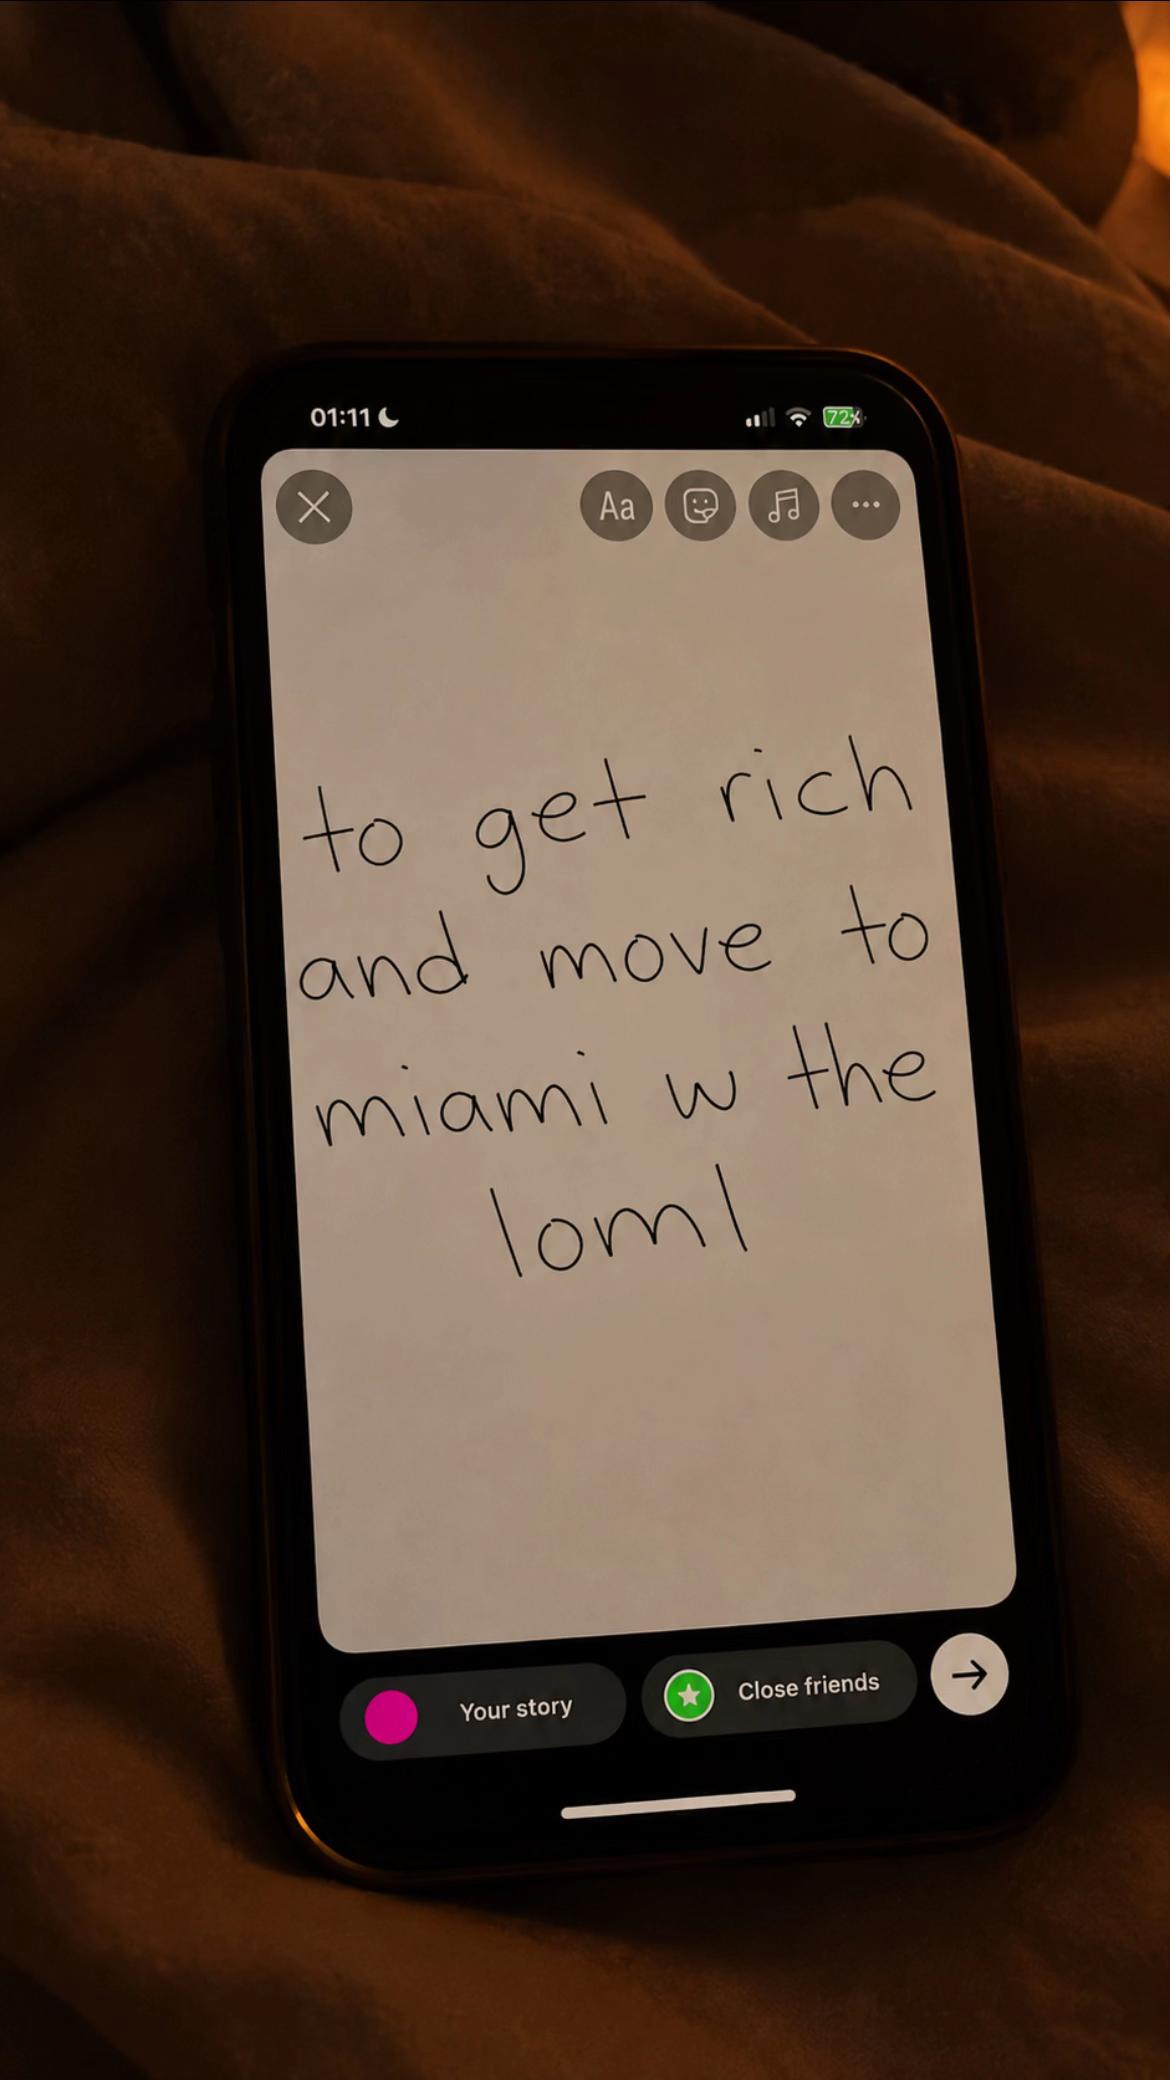 01:11
72%
Aa
to get rich
and move to
miami w the
loml
Your story
Close friends